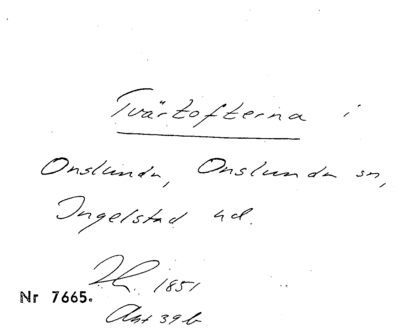 Tvärtofterna i
Onslunda, Onslunda sn,
Ingelstad hd.
1851
Nr 7665.
Akt 39 b